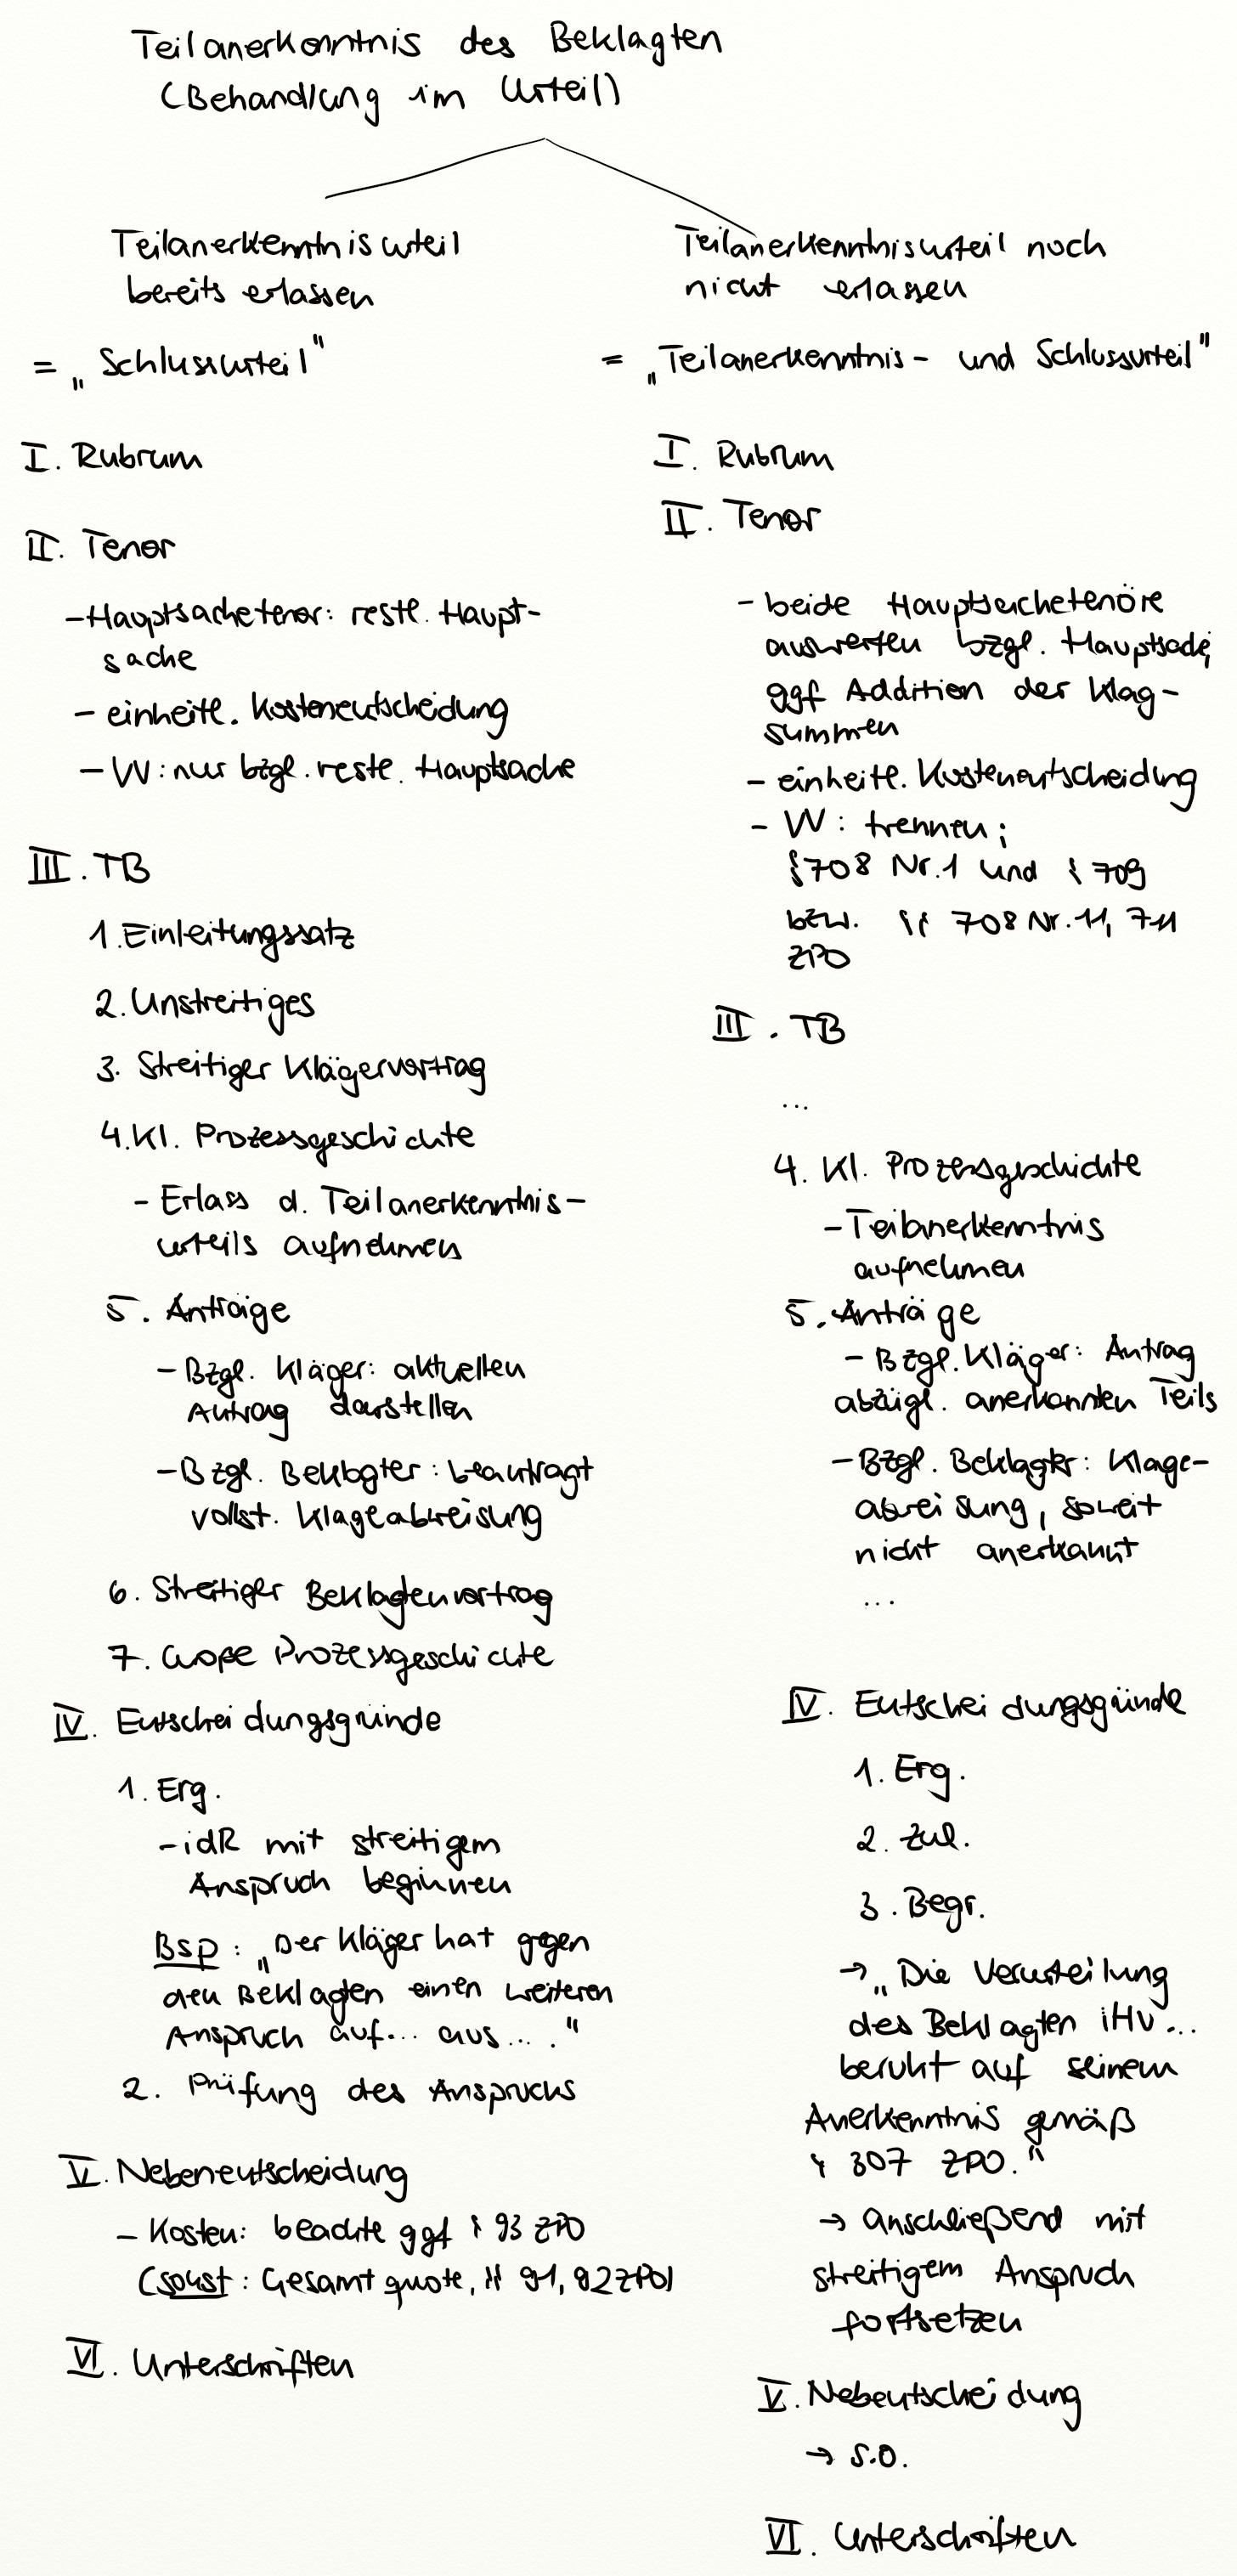 Teilanerkenntnis des Beklagten
(Behandlung im Urteil)
Teilanerkenntnisurteil
bereits erlassen
= „Schlussurteil"
I. Rubrum
II. Tenor
- Hauptsachetenor: restl. Haupt-
sache
- einheitl. Kostenentscheidung
- VV: nur bzgl. restl. Hauptsache
III. TB
1. Einleitungssatz
2. Unstreitiges
3. Streitiger Klägervortrag
4. Kl. Prozessgeschichte
- Erlass d. Teilanerkenntnis-
urteils aufnehmen
5. Anträge
- Bzgl. Kläger: aktuellen
Antrag darstellen
- Bzgl. Beklagter: beantragt
vollst. Klageabweisung
6. Streitiger Beklagtenvortrag
7. Große Prozessgeschichte
IV. Entscheidungsgründe
1. Erg.
- idR mit streitigem
Anspruch beginnen
Bsp: „Der Kläger hat gegen
den Beklagten einen weiteren
Anspruch auf... aus...."
2. Prüfung des Anspruchs
V. Nebenentscheidung
- Kosten: beachte ggf § 93 ZPO
(sonst: Gesamtquote, §§ 91, 92 ZPO)
VI. Unterschriften
Teilanerkenntnisurteil noch
nicht erlassen
= „Teilanerkenntnis- und Schlussurteil"
I. Rubrum
II. Tenor
- beide Hauptsachetenöre
auswerfen bzgl. Hauptsache;
ggf Addition der Klag-
summen
- einheitl. Kostenentscheidung
- VV: trennen;
§ 708 Nr. 1 und § 709
bzw. §§ 708 Nr. 11, 711
ZPO
III. TB
...
4. Kl. Prozessgeschichte
- Teilanerkenntnis
aufnehmen
5. Anträge
- Bzgl. Kläger: Antrag
abzügl. anerkannten Teils
- Bzgl. Beklagter: Klage-
abweisung, soweit
nicht anerkannt
...
IV. Entscheidungsgründe
1. Erg.
2. Zul.
3. Begr.
→ „Die Verurteilung
des Beklagten iHv...
beruht auf seinem
Anerkenntnis gemäß
§ 307 ZPO."
→ anschließend mit
streitigem Anspruch
fortsetzen
V. Nebentscheidung
→ s.o.
VI. Unterschriften